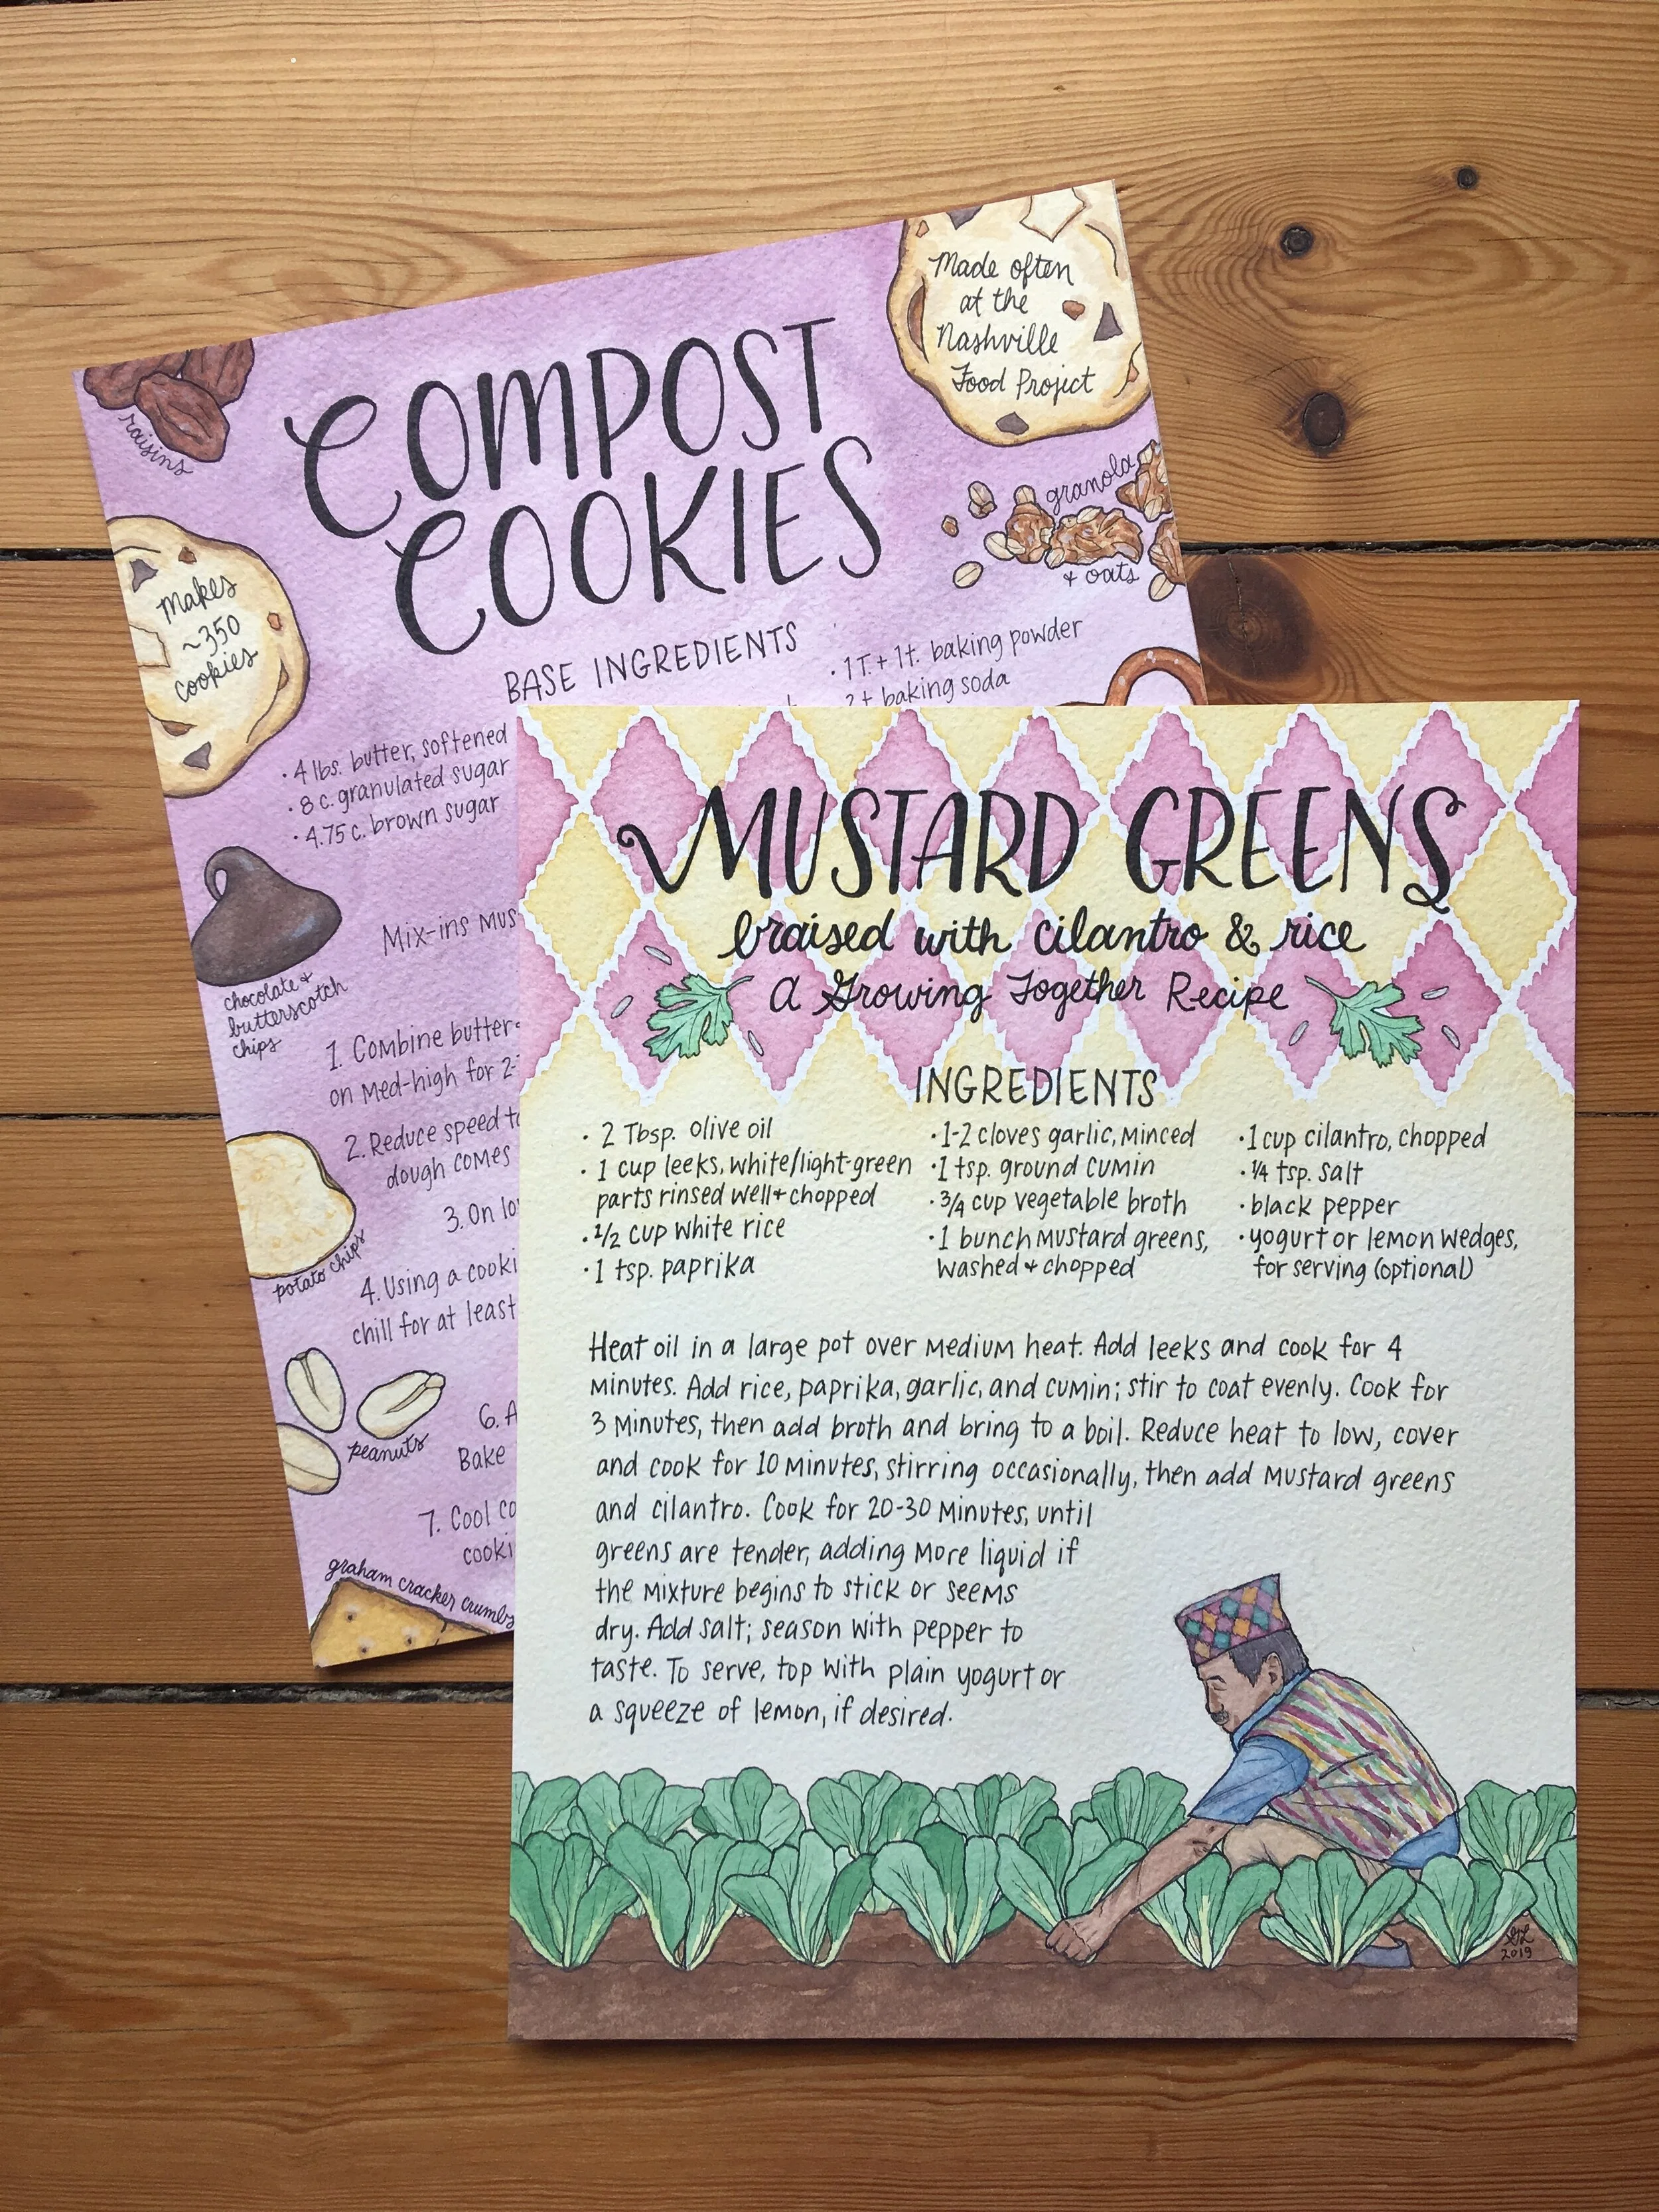 COMPOST
COOKIES
Made often
at the
Nashville
Food Project
raisins
granola
& oats
Makes
~350
cookies
BASE INGREDIENTS
· 4 lbs. butter, softened
· 8 c. granulated sugar
· 4.75 c. brown sugar
· 1 T. + 1 t. baking powder
baking soda
chocolate +
butterscotch
chips
Mix-ins
1. Combine butter
on med-high for 2-
2. Reduce speed
dough comes
3. On
4. Using a
chill for at least
potato chips
peanuts
6.
Bake
7. Cool
graham cracker crumbs
MUSTARD GREENS
braised with cilantro & rice
A Growing Together Recipe
INGREDIENTS
· 2 Tbsp. olive oil
· 1 cup leeks, white/light-green
parts rinsed well + chopped
· 1/2 cup white rice
· 1 tsp. paprika
· 1-2 cloves garlic, minced
· 1 tsp. ground cumin
· 3/4 cup vegetable broth
· 1 bunch mustard greens,
washed + chopped
· 1 cup cilantro, chopped
· 1/4 tsp. salt
· black pepper
· yogurt or lemon wedges,
for serving (optional)
Heat oil in a large pot over medium heat. Add leeks and cook for 4
minutes. Add rice, paprika, garlic, and cumin; stir to coat evenly. Cook for
3 minutes, then add broth and bring to a boil. Reduce heat to low, cover
and cook for 10 minutes, stirring occasionally, then add mustard greens
and cilantro. Cook for 20-30 minutes, until
greens are tender, adding more liquid if
the mixture begins to stick or seems
dry. Add salt; season with pepper to
taste. To serve, top with plain yogurt or
a squeeze of lemon, if desired.
2019